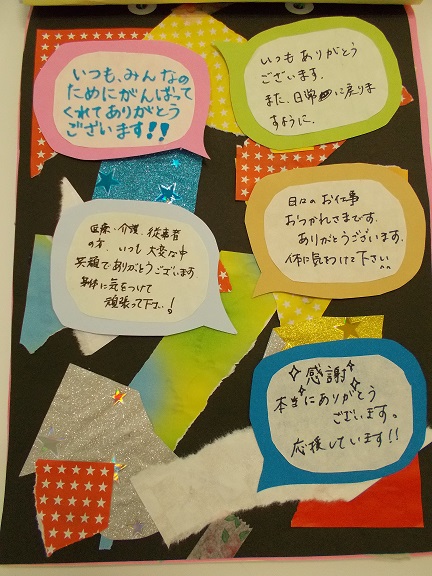 いつも、みんなの
ためにがんばって
くれてありがとう
ございます!!
いつもありがとう
ございます。
また、日常に戻りま
すように。
医療・介護・従事者
の方、いつも大変な中
笑顔でありがとうございます
身体に気をつけて
頑張って下さい!
日々のお仕事
おつかれさまです。
ありがとうございます。
体に気をつけて下さい
感謝
本当にありがとう
ございます。
応援しています!!